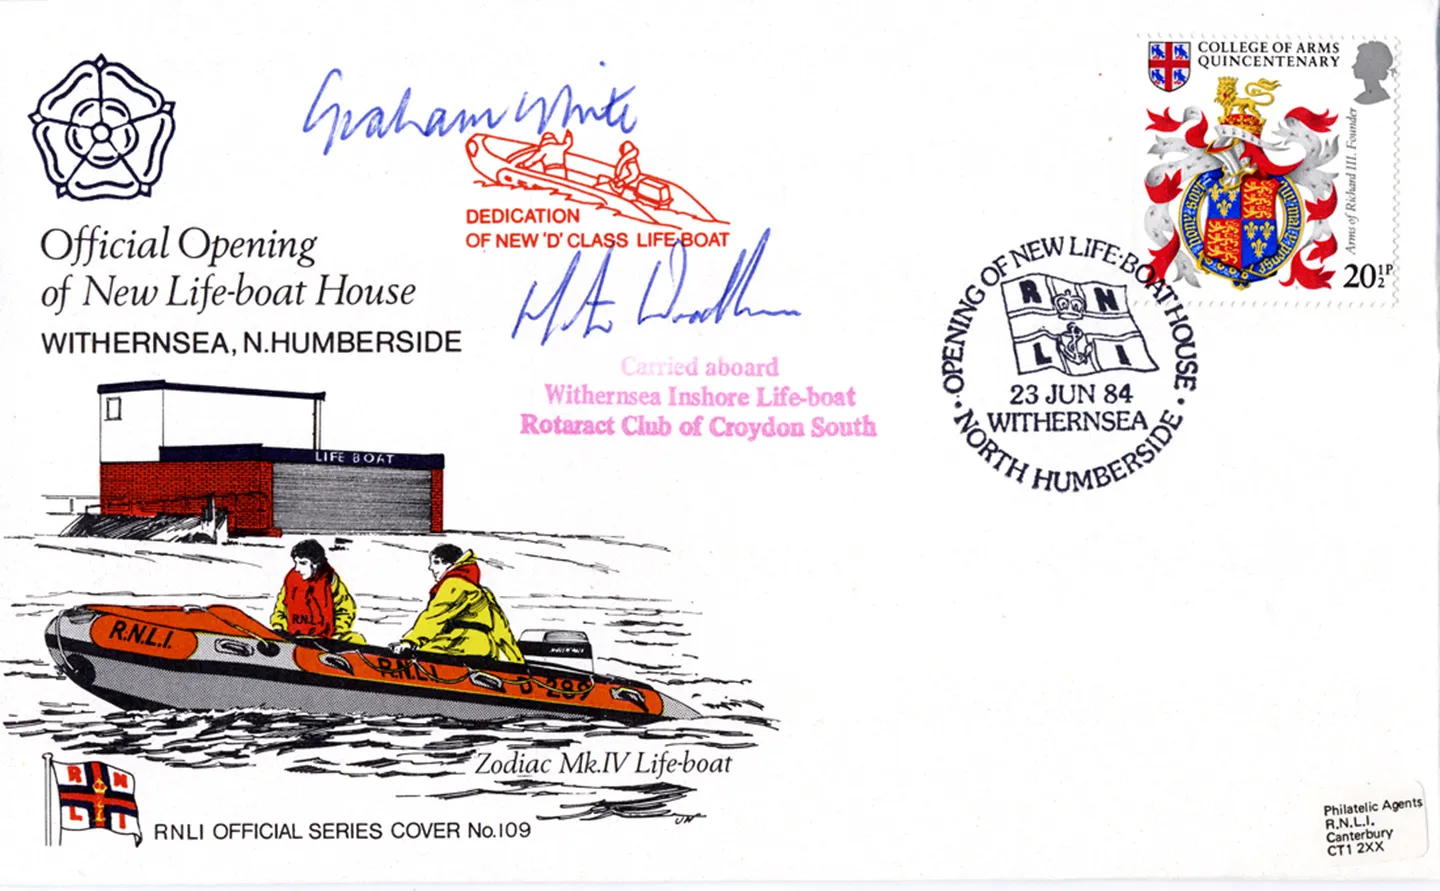 Official Opening
of New Life-boat House
WITHERNSEA, N.HUMBERSIDE
Graham White
DEDICATION
OF NEW 'D' CLASS LIFE-BOAT
Carried aboard
Withernsea Inshore Life-boat
Rotaract Club of Croydon South
COLLEGE OF ARMS
QUINCENTENARY
Arms of Richard III. Founder
20½P
OPENING OF NEW LIFE-BOAT HOUSE
R N
L I
23 JUN 84
WITHERNSEA
NORTH HUMBERSIDE
LIFE BOAT
R.N.L.I.
R.N.L.I
R.N.L.I
D 289
Zodiac Mk.IV Life-boat
R N
L I
RNLI OFFICIAL SERIES COVER No.109
Philatelic Agents
R.N.L.I.
Canterbury
CT1 2XX